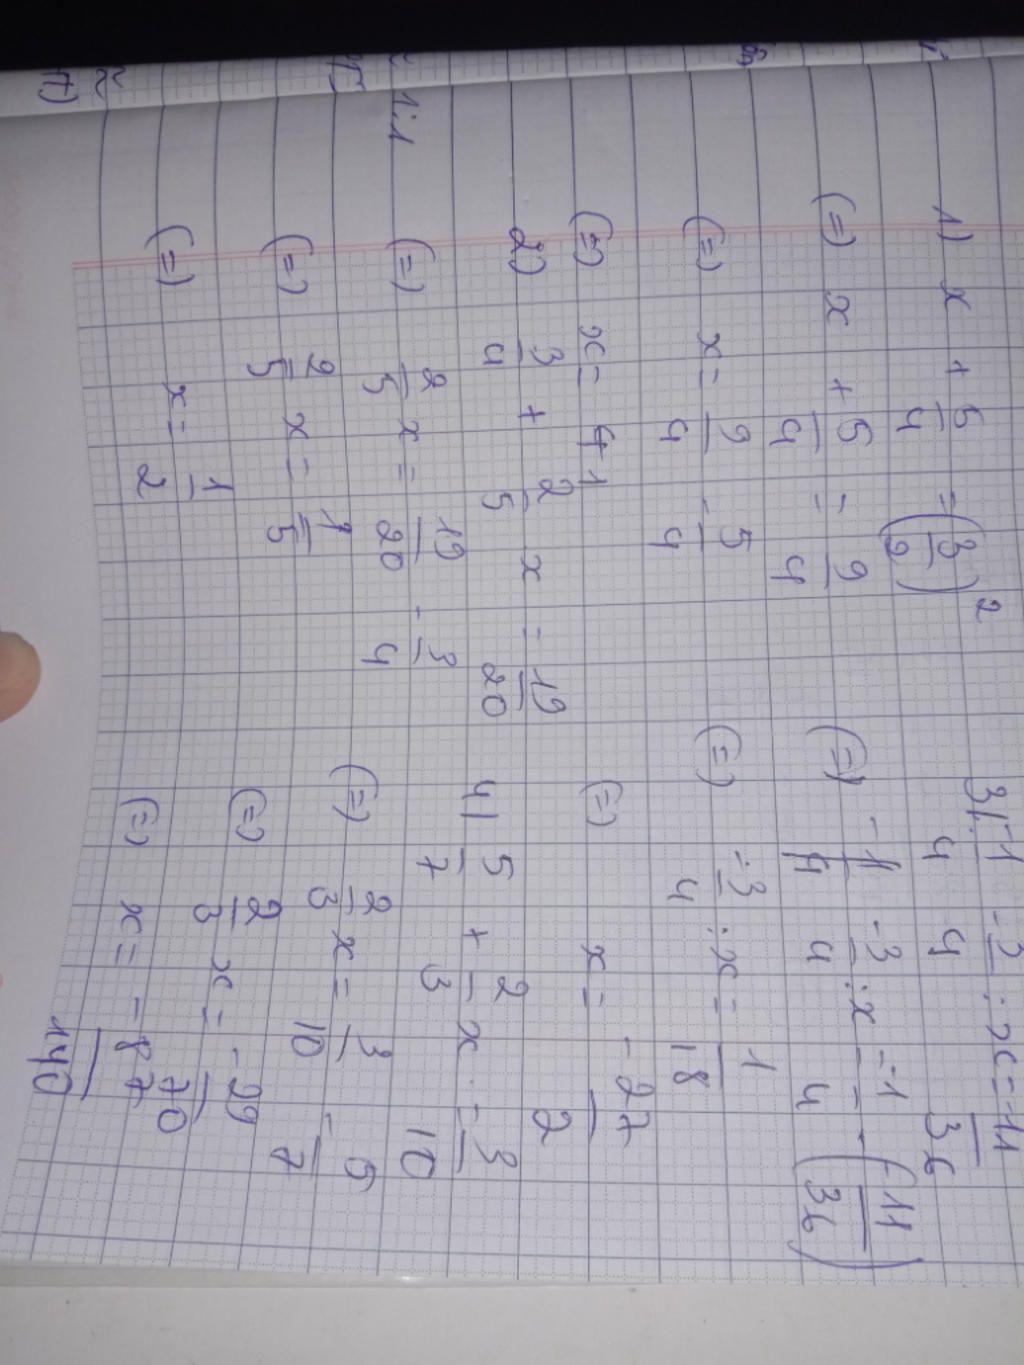 1) x + 5/4 = (3/2)²
(=) x + 5/4 = 9/4
(=) x = 9/4 - 5/4
(=) x = 1
2) 3/4 + 2/5 x = 19/20
(=) 2/5 x = 19/20 - 3/4
(=) 2/5 x = 1/5
(=) x = 1/2
3) -1/4 - 3/4 : x = -11/36
(=) -1/4 - 3/4 : x = -1/4 - (-11/36)
(=) -3/4 : x = 1/18
(=) x = -27/2
4) 5/7 + 2/3 x = 3/10
(=) 2/3 x = 3/10 - 5/7
(=) 2/3 x = -29/70
(=) x = -87/140
1.1